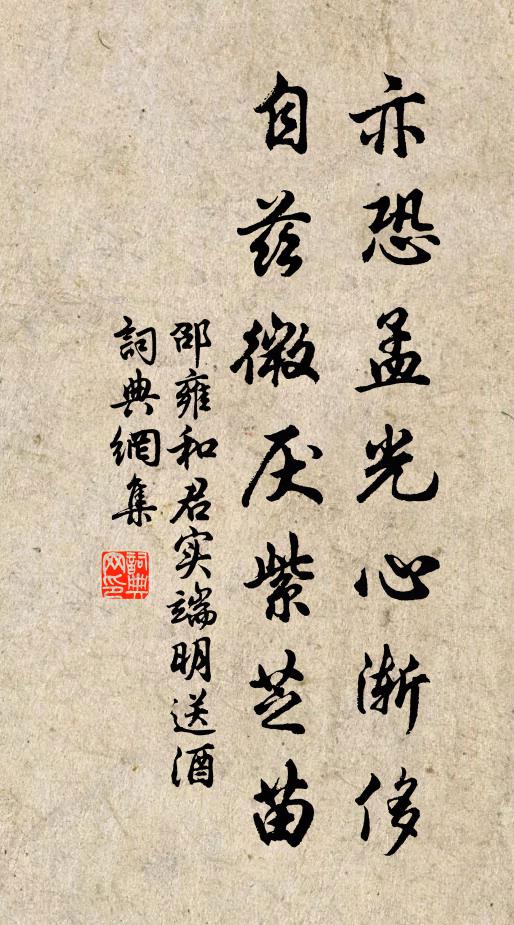 亦恐孟光心渐侈
自兹微厌紫芝苗
邵雍和君实端明送酒
詞典網集
詞典网印